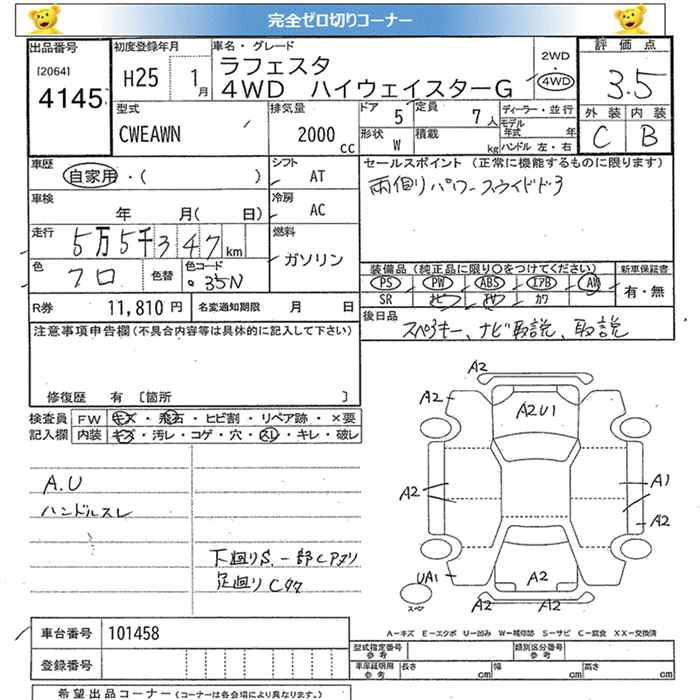 完全ゼロ切りコーナー
出品番号
[2064]
4145
初度登録年月
H25 1月
車名・グレード
ラフェスタ
4WD ハイウェイスターG
2WD
・
4WD
評価点
3.5
外装 内装
C B
型式
CWEAWN
排気量
2000 cc
ドア 5
定員 7人
形状 W
積載 kg
ディーラー・並行
モデル年式 年
ハンドル 左・右
車歴
自家用・( )
シフト
AT
車検
年 月( 日)
冷房
AC
走行
5万5千347km
燃料
ガソリン
色
クロ
色替
色コード
35N
R券 11,810円
名変通知期限 月 日
セールスポイント (正常に機能するものに限ります)
両側パワースライドドア
装備品(純正品に限り○をつけてください)
PS PW ABS エアB AW
SR ナビ TV カワ
新車保証書
有・無
後日品
スペアキー、ナビ取説、取説
注意事項申告欄(不具合内容等は具体的に記入して下さい)
修復歴 有 [箇所 ]
検査員 FW キズ・飛石・ヒビ割・リペア跡・×要
記入欄 内装 キズ・汚レ・コゲ・穴・スレ・キレ・破レ
A.U
ハンドルスレ
下廻りS.一部Cアリ
足廻りCクク
A2
A2
A2U1
A2
A1
A2
UA1
A2
スペア
A2 A2
A-キズ E-エクボ U-凹み W-補修跡 S-サビ C-腐食 XX-交換済
車台番号 101458
登録番号
型式指定番号
参考
類別区分番号
参考
車庫証明用
参考
長さ cm 幅 cm 高さ cm
希望出品コーナー(コーナーは各会場により異なります。)